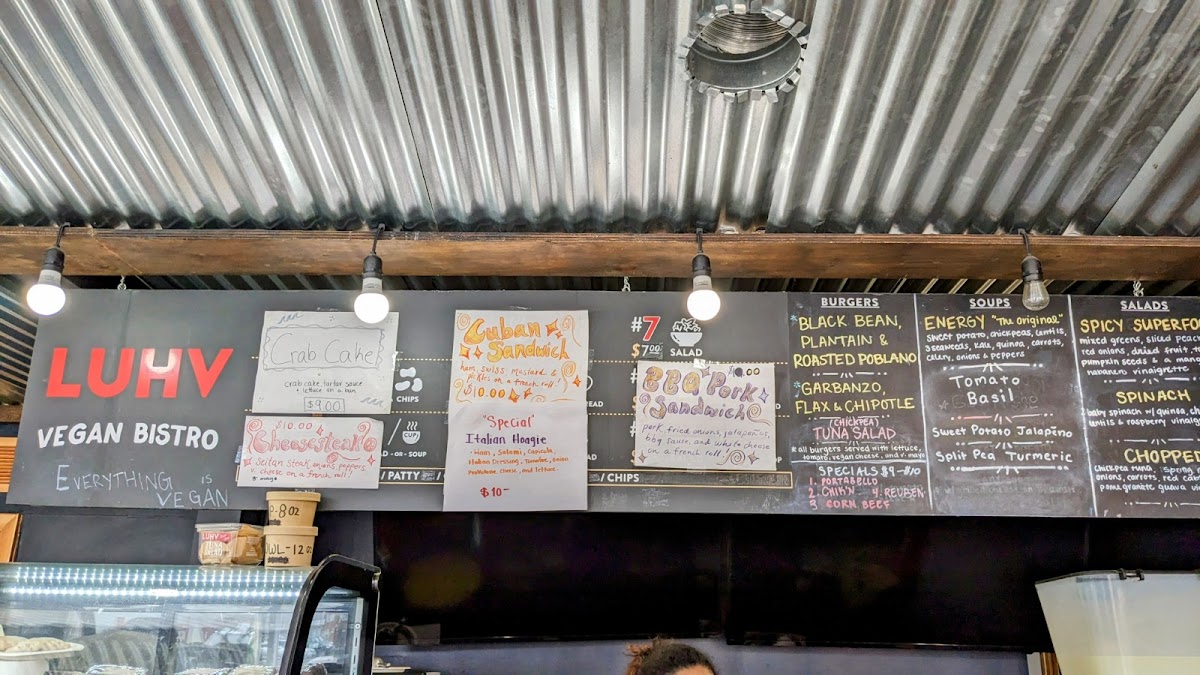 LUHV
VEGAN BISTRO
EVERYTHING IS
VEGAN
Crab Cake
crab cake, tartar sauce
+ lettuce on a bun
$9.00
$10.00
Cheesesteak
Seitan steak, onions, peppers,
+ cheese on a french roll.
CHIPS
CUP
- OR - SOUP
/ PATTY /
Cuban
Sandwich
ham, swiss, mustard &
pickles on a french roll.
$10.00
"Special"
Italian Hoagie
- Ham, Salami, Capicola,
Italian Dressing, Tomatoes, Onion
Provolone cheese, and lettuce.
$10-
/ CHIPS
#7
$7.00
SALAD
BBQ Pork
Sandwich
pork, fried onions, jalapeños,
bbq sauce, and white cheese
on a french roll!
BURGERS
*BLACK BEAN,
PLANTAIN &
ROASTED POBLANO
*GARBANZO,
FLAX & CHIPOTLE
(CHICKPEA)
TUNA SALAD
* all burgers served with lettuce,
tomato, vegan cheese, and v-mayo
SPECIALS $9-$10
1. PORTABELLO
2. CHIK'N 4. REUBEN
3. CORN BEEF
SOUPS
ENERGY "The Original"
sweet potato, chickpeas, lentils,
seaweeds, kale, quinoa, carrots,
celery, onions & peppers
Tomato
Basil
Sweet Potato Jalapeño
Split Pea Turmeric
SALADS
SPICY SUPERFO
mixed greens, sliced peac
red onions, dried fruit
pumpkin seeds & a
habanero vinaigrette
SPINACH
baby spinach w/ quinoa, ch
lentils & raspberry vinaig
CHOPPED
chickpea tuna, spring
onions, carrots, red cab
pomegranate guava vin
LUHV
TUNA
SALAD
8oz
WL-12oz